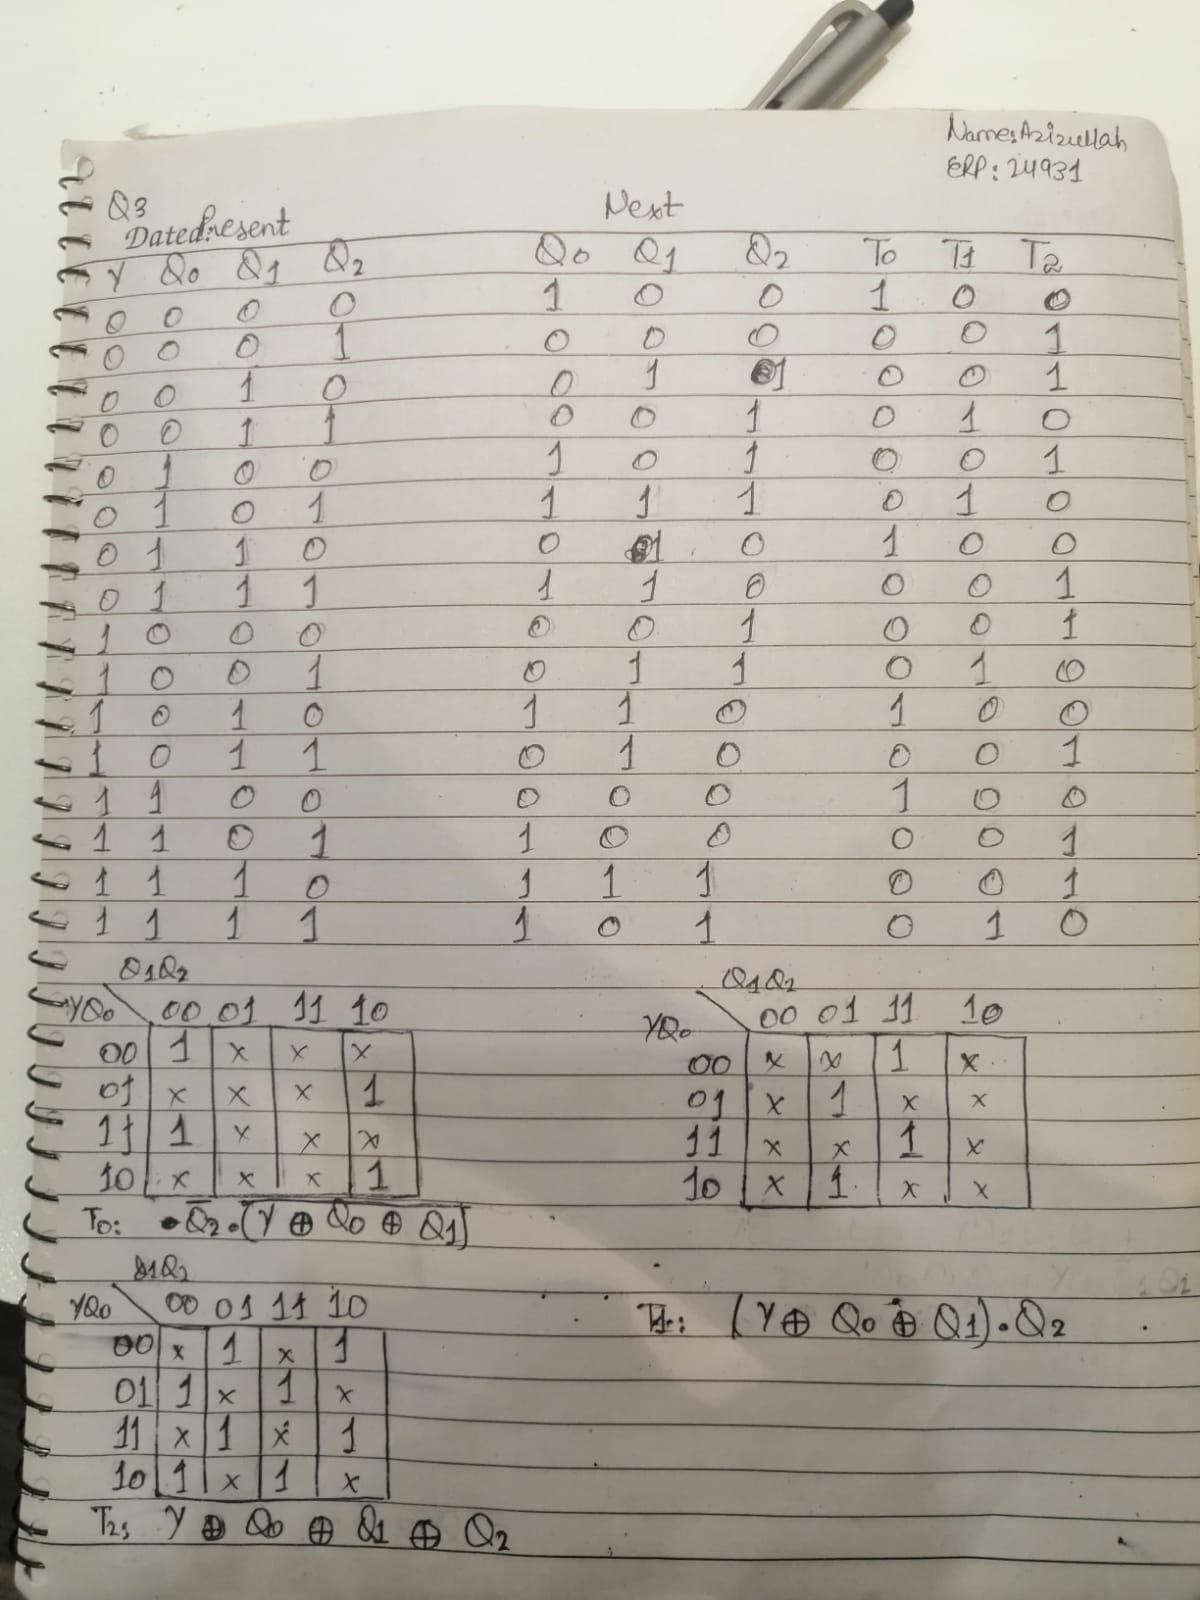 Name: Azizullah
ERP: 24931
Q3
Dated: Present Next
Y Q0 Q1 Q2 Q0 Q1 Q2 T0 T1 T2
0 0 0 0 1 0 0 1 0 0
0 0 0 1 0 0 0 0 0 1
0 0 1 0 0 1 1 0 0 1
0 0 1 1 0 0 1 0 1 0
0 1 0 0 1 0 1 0 0 1
0 1 0 1 1 1 1 0 1 0
0 1 1 0 0 1 0 1 0 0
0 1 1 1 1 1 0 0 0 1
1 0 0 0 0 0 1 0 0 1
1 0 0 1 0 1 1 0 1 0
1 0 1 0 1 1 0 1 0 0
1 0 1 1 0 1 0 0 0 1
1 1 0 0 0 0 0 1 0 0
1 1 0 1 1 0 0 0 0 1
1 1 1 0 1 1 1 0 0 1
1 1 1 1 1 0 1 0 1 0
Q1Q2
YQ0 00 01 11 10
00 1 x x x
01 x x x 1
11 1 x x x
10 x x x 1
T0: Q̅2.(Y̅ ⊕ Q̅0̅ ⊕ Q̅1̅)
Q1Q2
YQ0 00 01 11 10
00 x x 1 x
01 x 1 x x
11 x x 1 x
10 x 1 x x
T1: (Y ⊕ Q0 ⊕ Q1).Q2
Q1Q2
YQ0 00 01 11 10
00 x 1 x 1
01 1 x 1 x
11 x 1 x 1
10 1 x 1 x
T2: Y ⊕ Q0 ⊕ Q1 ⊕ Q2